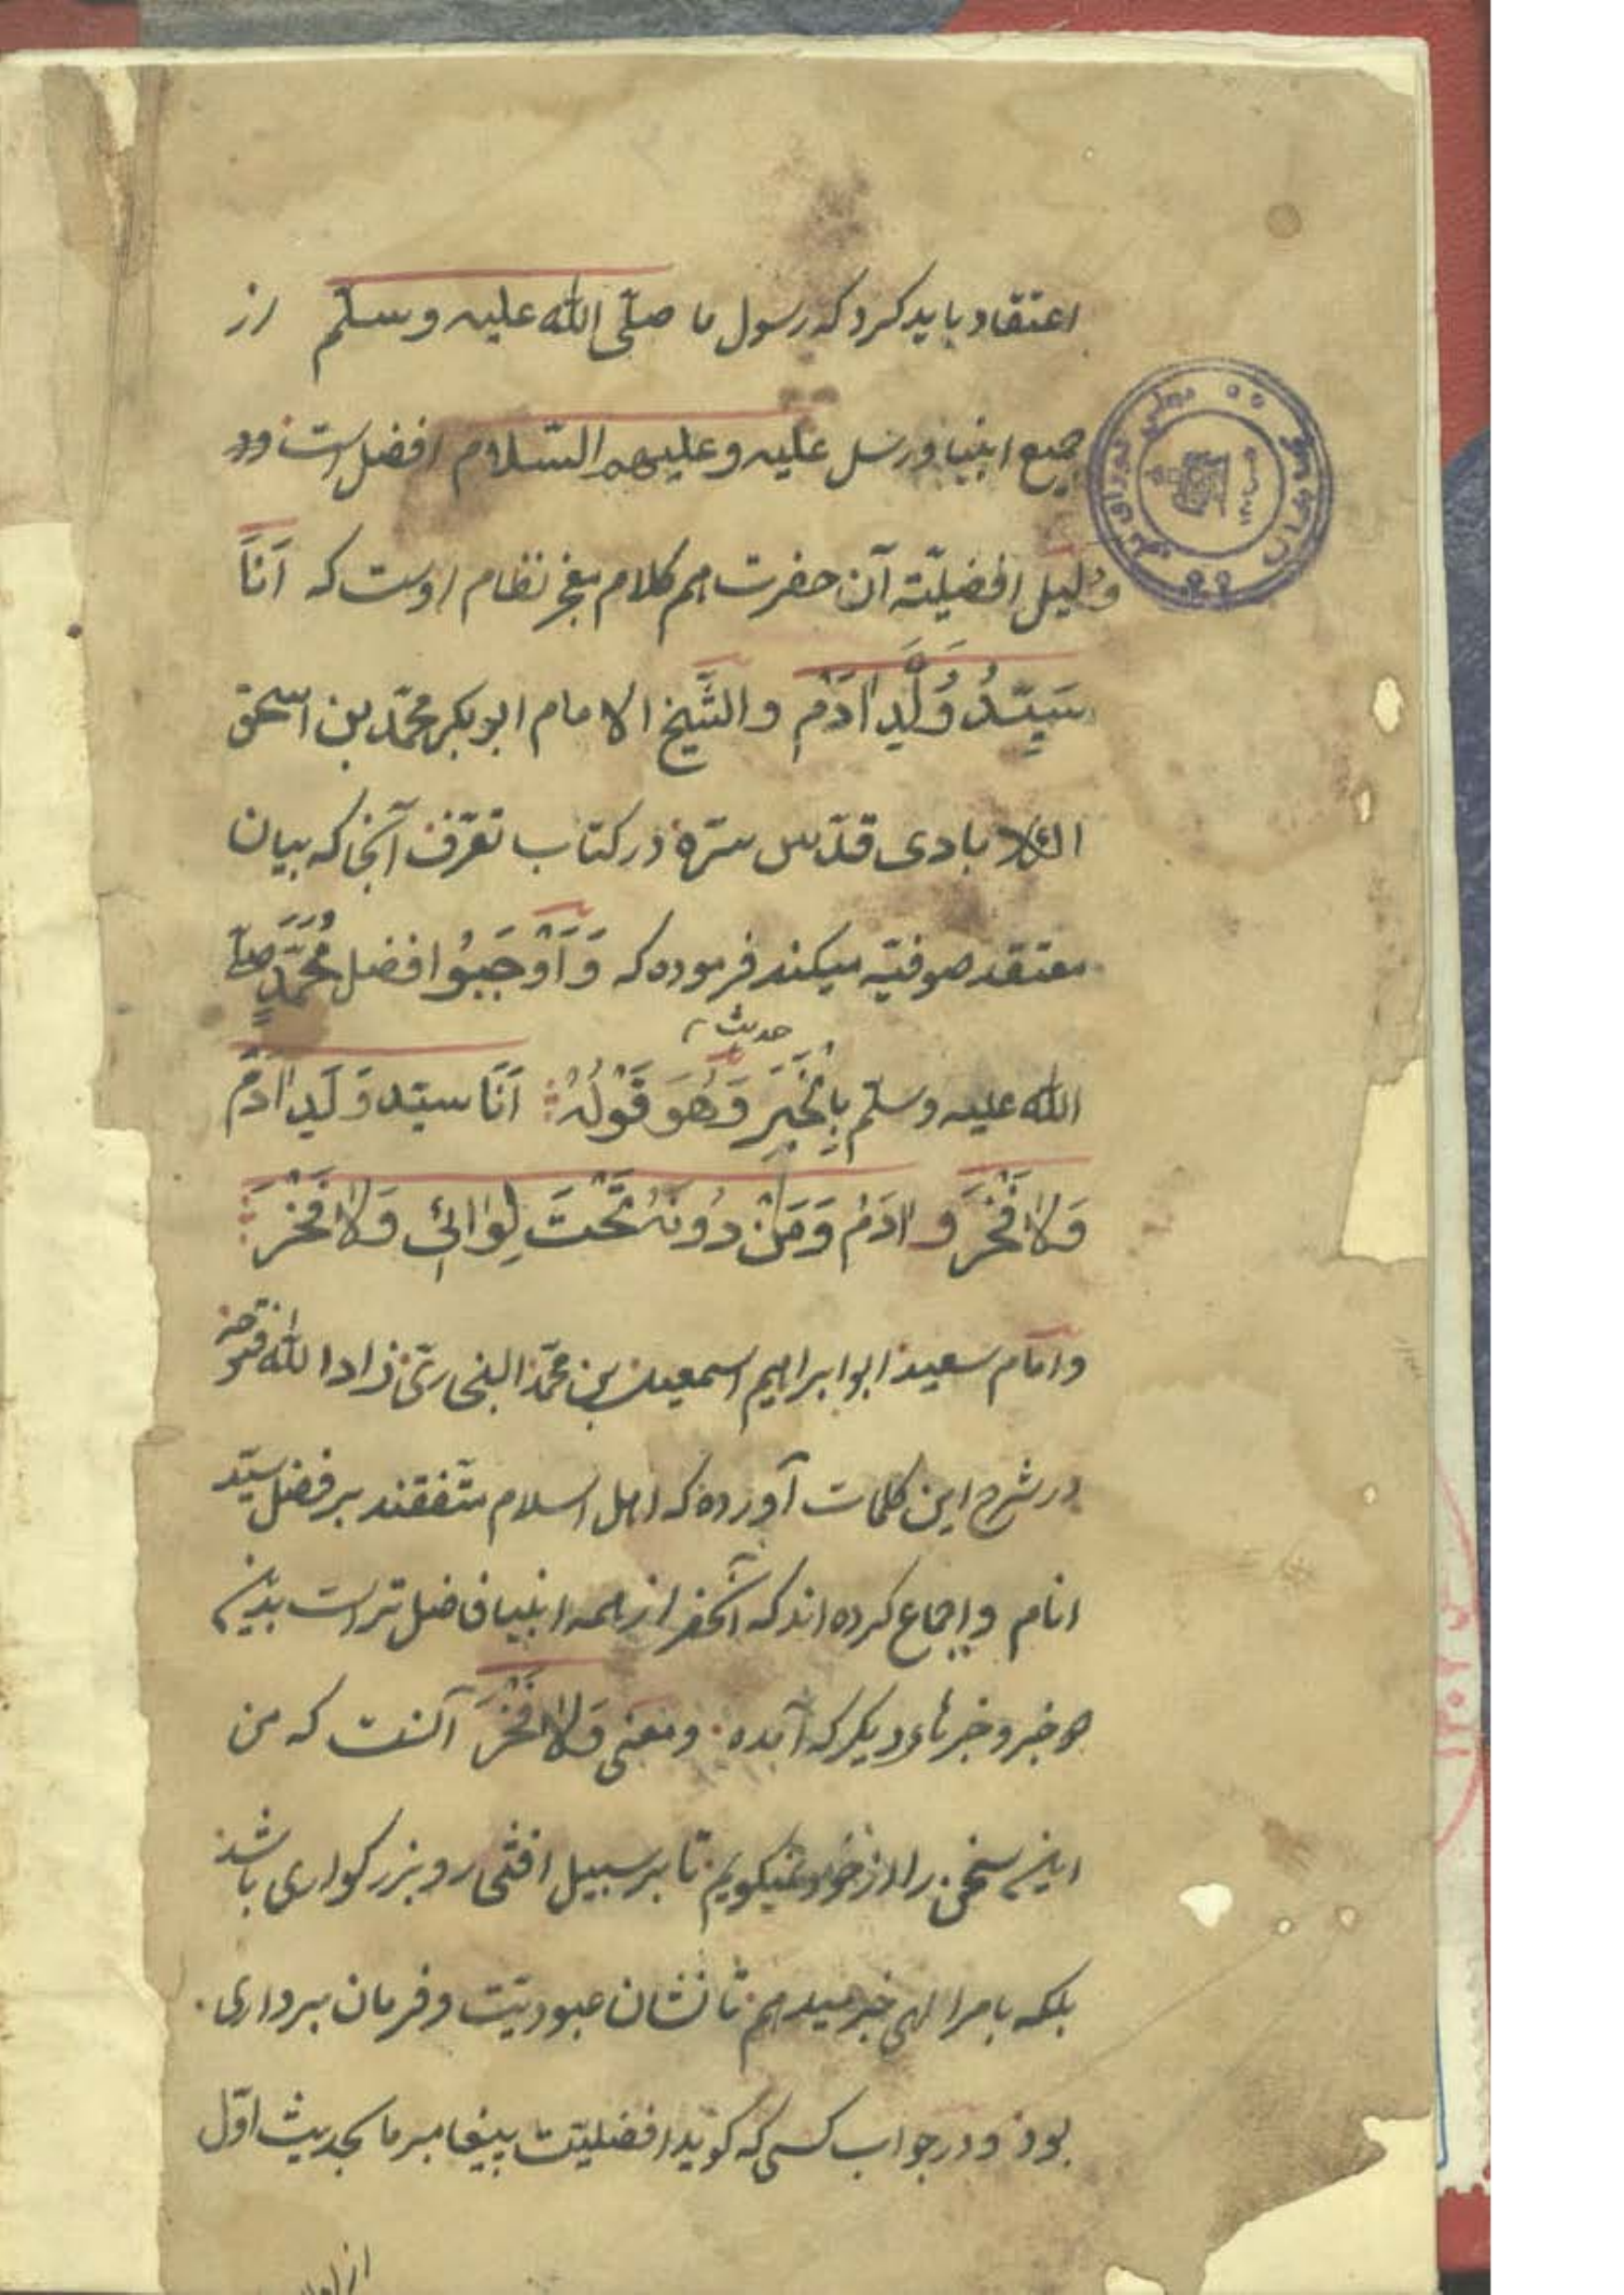 اعتقاد باید کرد که رسول ما صلّی الله علیه وسلّم از
جمیع انبیا ورسل علیه وعلیهم السّلام افضل است ودو
دلیل افضلیّته آن حضرت هم کلام معجز نظام اوست که اَنَا
سَیِّدُ وُلَدِ اٰدَمَ والشَّیخ الامام ابوبکر محمّد بن اسحق
الکلابادی قدّس سرّه در کتاب تعرّف آنجا که بیان
معتقد صوفیّه میکند فرموده که وَاَوْجَبُوا فضل مُحَمَّدٍ صلّی
حدیث
الله علیه وسلّم بِالْخَبَرِ وَهُوَ قَوْلُهُ اَنَا سیّد وَلَدِ اٰدَمَ
وَلَا فَخْرَ و اٰدَمُ وَمَنْ دُونَهُ تَحْتَ لِوَائِی وَلَا فَخْرَ
وامام سعید ابوابراهیم اسمعیل بن محمّد البخاری زاد الله فتوحه
در شرح این کلمات آورده که اهل اسلام متّفقند بر فضل سیّد
انام واجماع کرده اند که آنحضر از همه انبیا فاضل تر است بدین
خبر وخبرهاء دیگر که آمده ومعنی وَلَا فَخْرَ آنست که من
این سخن را از خود نمیگویم تا بر سبیل افتخار وبزرگواری باشد
بلکه بامر الهی خبر میدهم تا نشان عبودیّت وفرمان برداری
بود ودر جواب کسی که گوید افضلیّت پیغامبر ما بحدیث اوّل